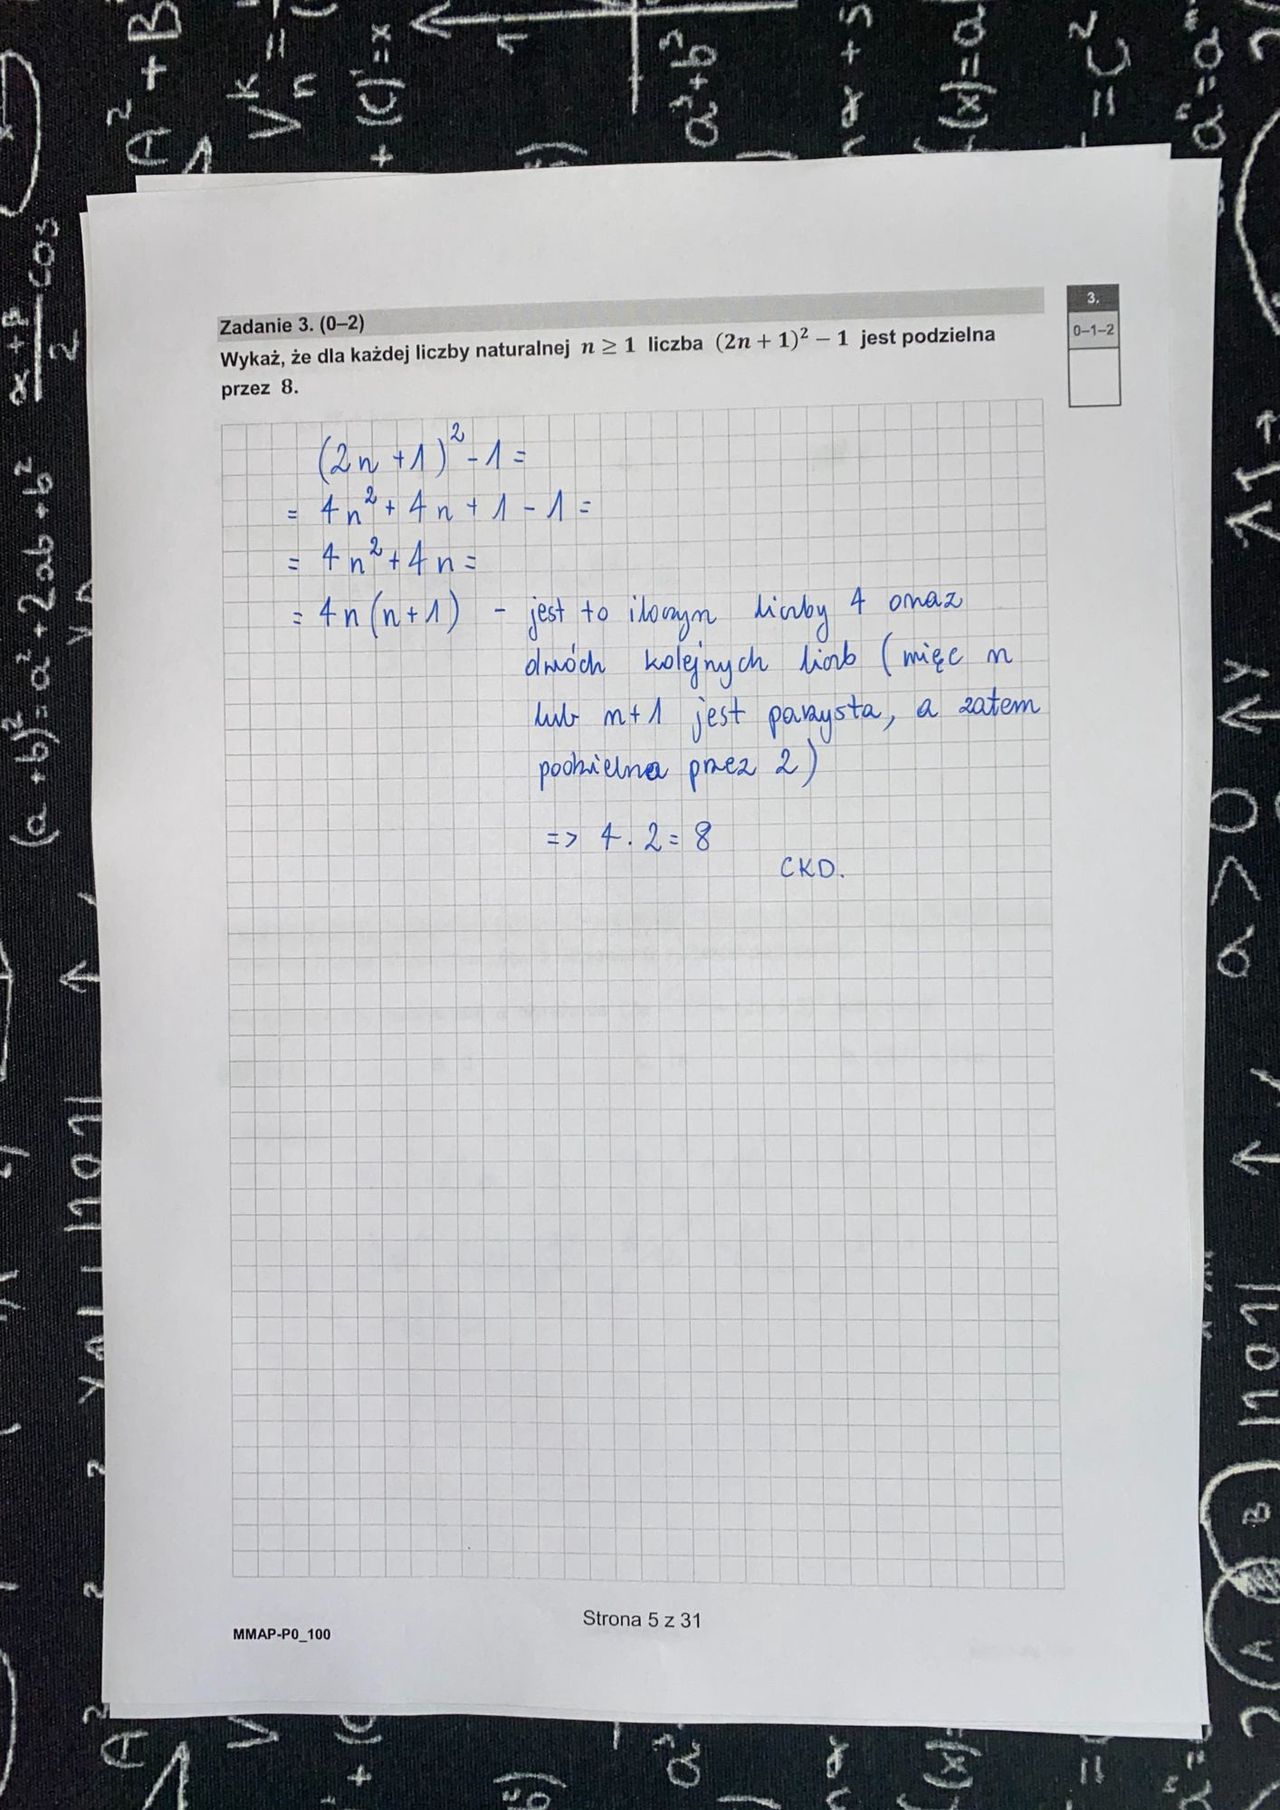 Zadanie 3. (0–2)
Wykaż, że dla każdej liczby naturalnej n ≥ 1 liczba (2n + 1)² − 1 jest podzielna
przez 8.
3.
0–1–2
(2n+1)²-1=
= 4n²+4n+1-1=
= 4n²+4n=
= 4n(n+1) - jest to iloczyn liczby 4 oraz
dwóch kolejnych liczb (więc n
lub n+1 jest parzysta, a zatem
podzielna przez 2)
=> 4·2=8
CKD.
Strona 5 z 31
MMAP-P0_100
(a+b)²=a²+2ab+b²